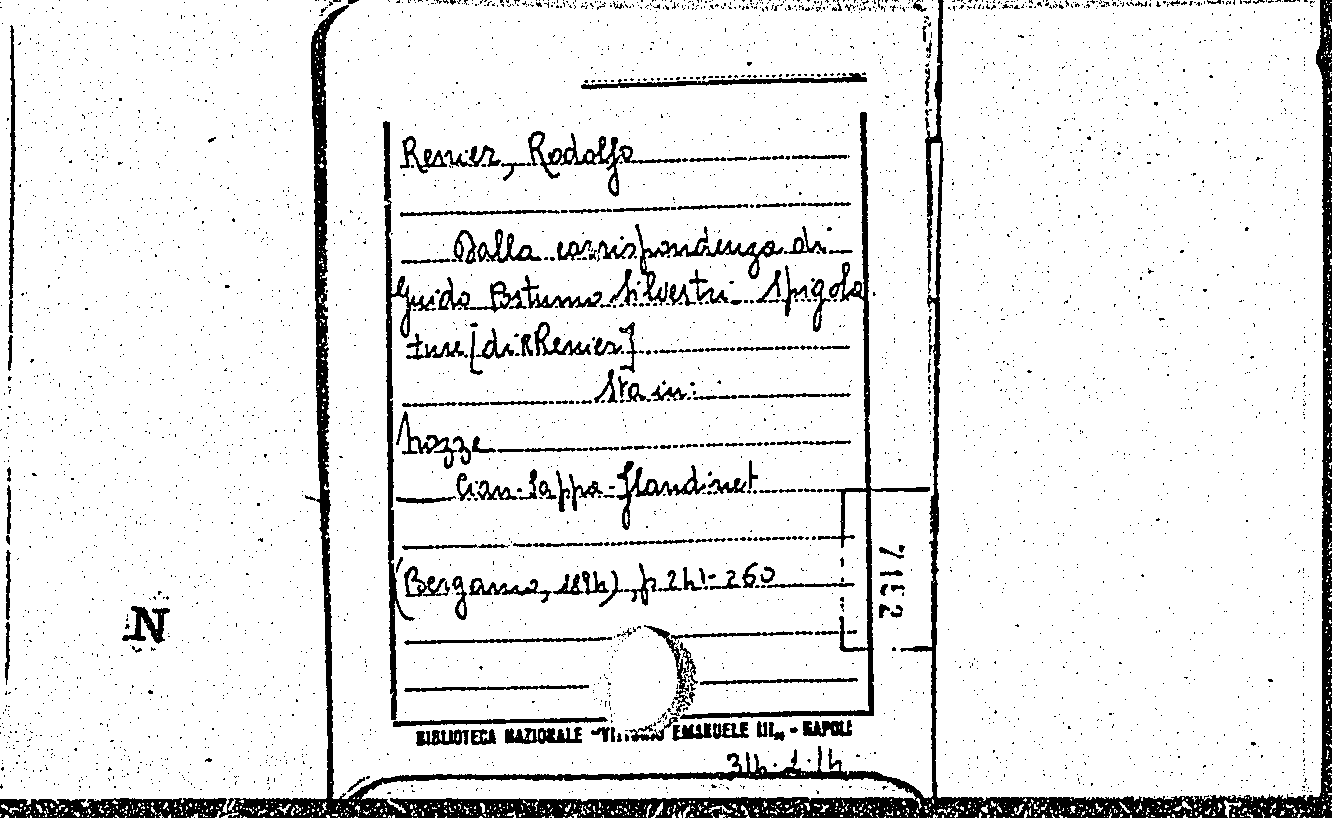 Renier, Rodolfo
Dalla corrispondenza di
Guido Postumo Silvestri. Spigola
ture [di R Renier]
Sta in:
Nozze
Cian-Sappa-Flandinet
(Bergamo, 1894), p 241-260
7152
N
BIBLIOTECA NAZIONALE "VITTORIO EMANUELE III" - NAPOLI